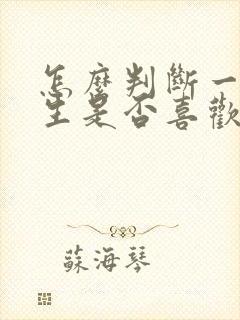 怎麼判斷一
生是否喜歡
蘇海琴